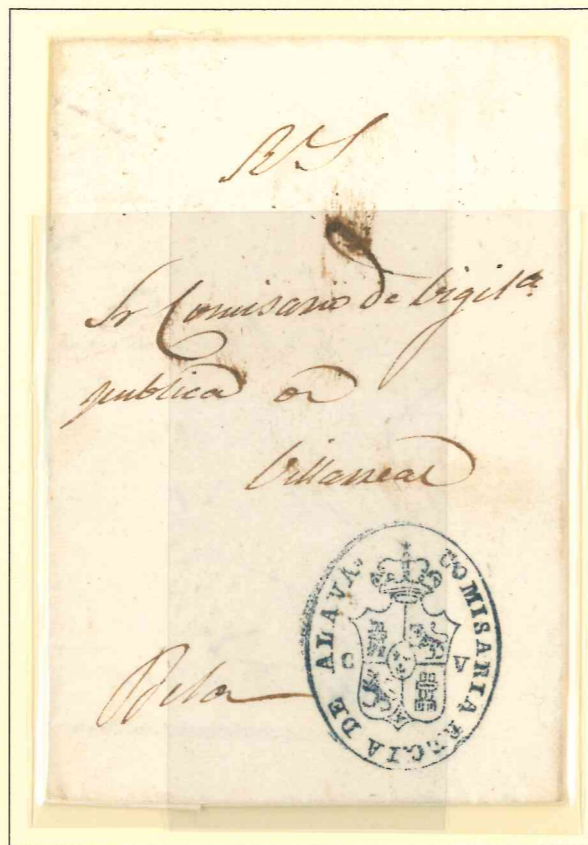 Sr Comisario de Vigil.ª
publica en
Villarreal
COMISARIA REGIA DE ALAVA.
C V